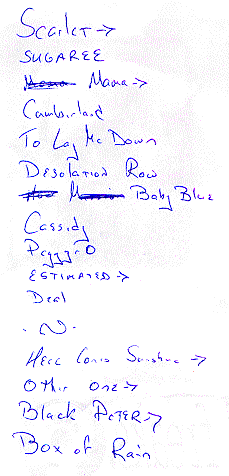 Scarlet →
SUGAREE
Mama →
Cumberland
To Lay Me Down
Desolation Row
Baby Blue
Cassidy
Peggy-O
ESTIMATED →
Deal
~N~
Here Comes Sunshine →
Other One →
Black Peter →
Box of Rain